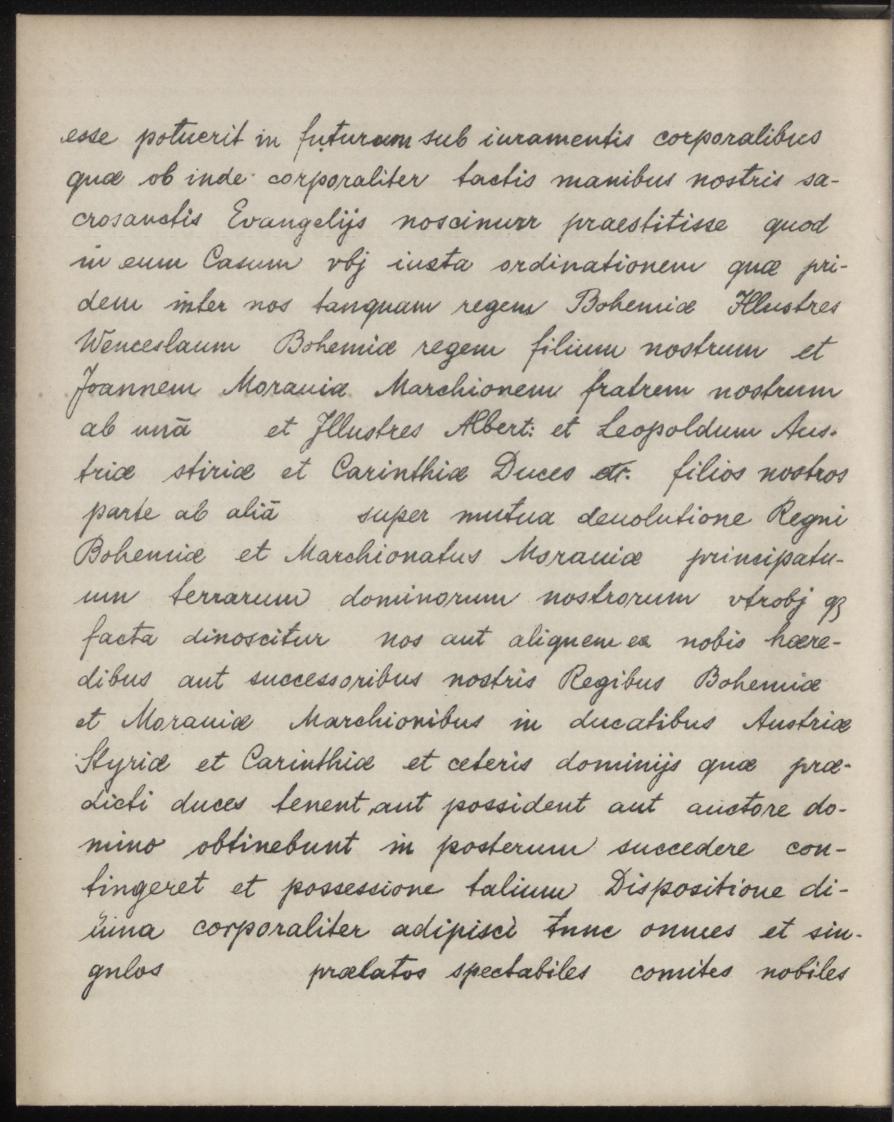 esse potuerit in futurum sub iuramentis corporalibus
quæ ob inde corporaliter tactis manibus nostris sa-
crosanctis Evangelijs noscimurr praestitisse quod
in eum Casum vbj iuxta ordinationem quæ pri-
dem inter nos tanquam regem Bohemiæ Illustres
Wenceslaum Bohemiæ regem filium nostrum et
Joannem Morauiæ Marchionem fratrem nostrum
ab unā et Jllustres Albert: et Leopoldum Aus-
triæ stiriæ et Carinthiæ Duces etc. filios nostros
parte ab aliā super mutua deuolutione Regni
Bohemiæ et Marchionatus Morauiæ principatu-
um terrarum dominorum nostrorum vtrobj qȝ
facta dinoscitur nos aut aliquem ex nobis hære-
dibus aut successoribus nostris Regibus Bohemiæ
et Morauiæ Marchionibus in ducatibus Austriæ
Styriæ et Carinthiæ et ceteris dominijs quæ præ-
dicti duces tenent, aut possident aut auctore do-
mino obtinebunt in posterum succedere con-
tingeret et possessione talium Dispositione di-
üina corporaliter adipisci tunc omnes et sin-
gulos prælatos spectabiles comites nobiles